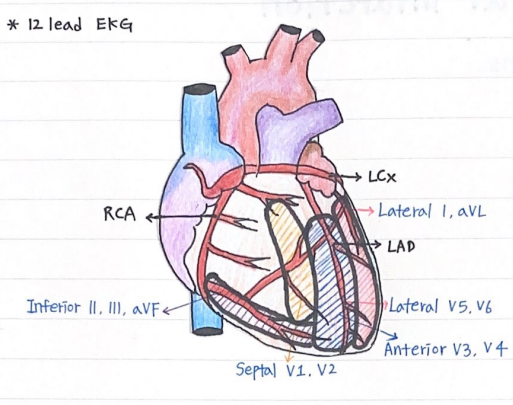 * 12 lead EKG
LCx
RCA
Lateral I, aVL
LAD
Inferior II, III, aVF
Lateral V5, V6
Anterior V3, V4
Septal V1, V2